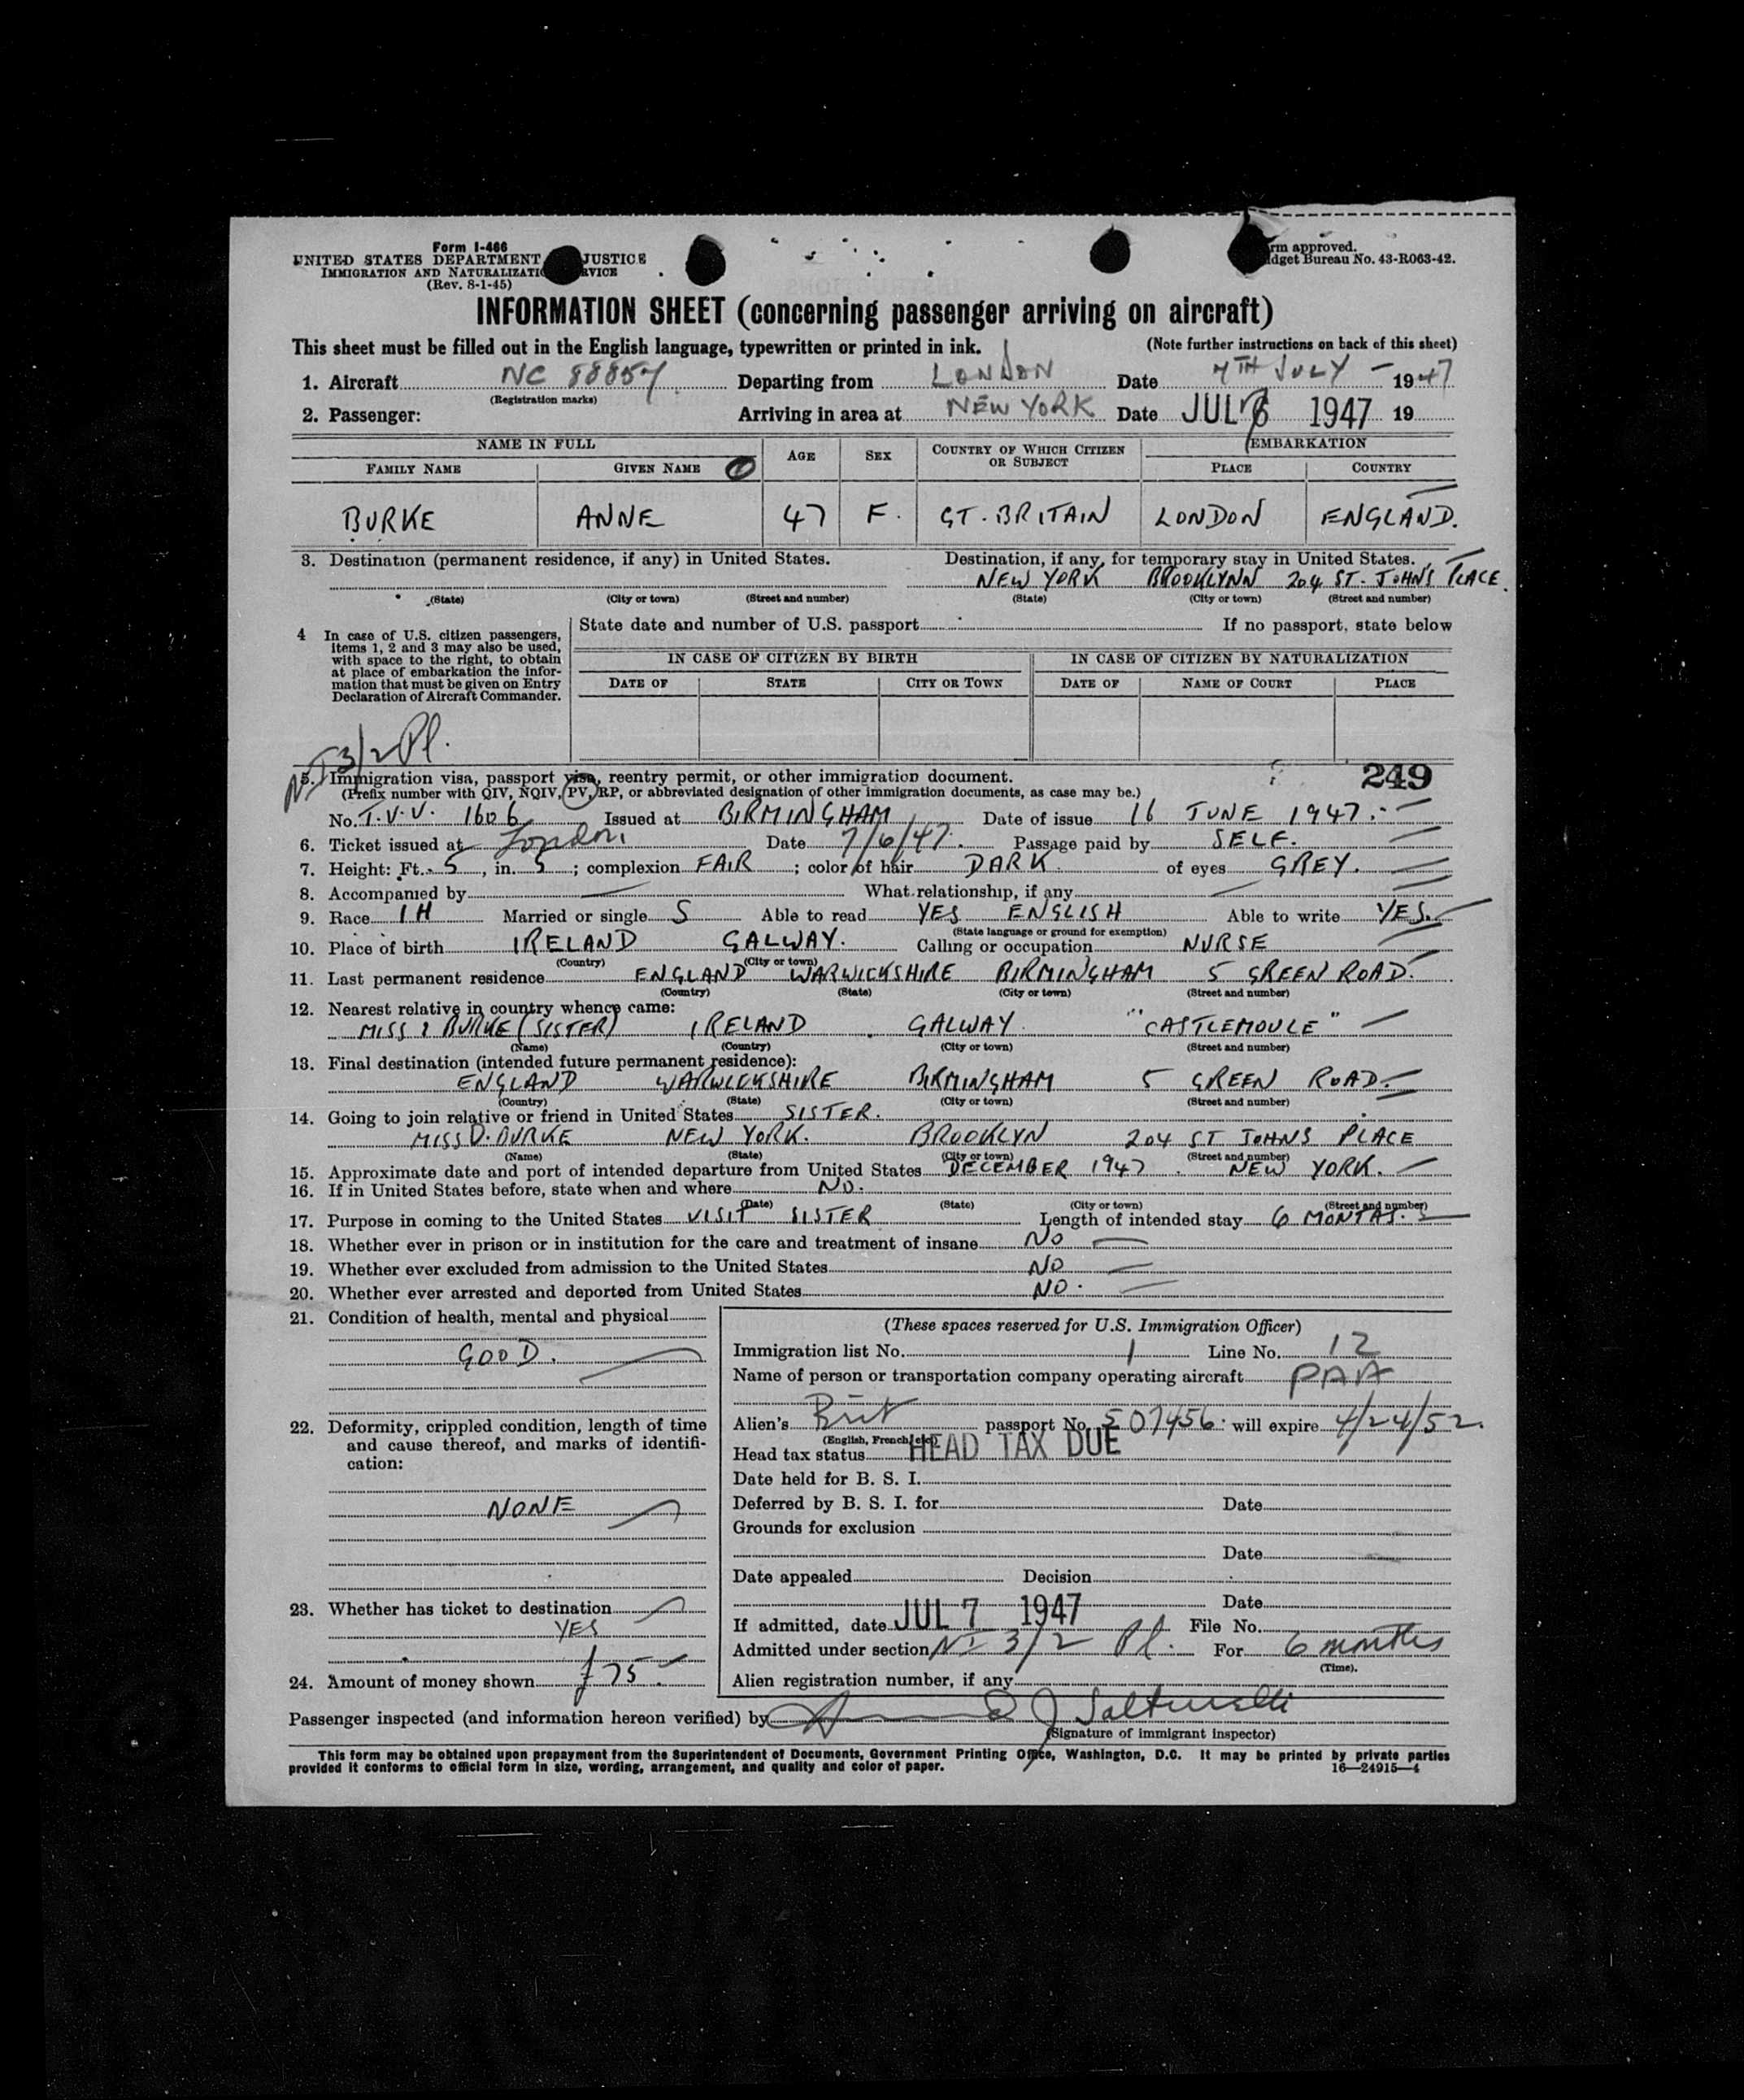 Form I-466
UNITED STATES DEPARTMENT JUSTICE
IMMIGRATION AND NATURALIZATION SERVICE
(Rev. 8-1-45)
Form approved.
Budget Bureau No. 43-R063-42.
INFORMATION SHEET (concerning passenger arriving on aircraft)
This sheet must be filled out in the English language, typewritten or printed in ink. (Note further instructions on back of this sheet)
1. Aircraft NC 88857 Departing from LONDON Date 7TH JULY - 1947
(Registration marks)
2. Passenger: Arriving in area at NEW YORK Date JUL 1947 19
NAME IN FULL AGE SEX COUNTRY OF WHICH CITIZEN OR SUBJECT EMBARKATION
FAMILY NAME GIVEN NAME PLACE COUNTRY
BURKE ANNE 47 F. GT. BRITAIN LONDON ENGLAND.
3. Destination (permanent residence, if any) in United States. Destination, if any, for temporary stay in United States.
NEW YORK BROOKLYNN 204 ST. JOHNS PLACE.
(State) (City or town) (Street and number) (State) (City or town) (Street and number)
4 In case of U.S. citizen passengers, items 1, 2 and 3 may also be used, with space to the right, to obtain at place of embarkation the information that must be given on Entry Declaration of Aircraft Commander.
State date and number of U.S. passport If no passport, state below
IN CASE OF CITIZEN BY BIRTH IN CASE OF CITIZEN BY NATURALIZATION
DATE OF STATE CITY OR TOWN DATE OF NAME OF COURT PLACE
NI 3/2 Pl.
249
5. Immigration visa, passport visa, reentry permit, or other immigration document.
(Prefix number with QIV, NQIV, PV, RP, or abbreviated designation of other immigration documents, as case may be.)
No. T.V.V. 1606 Issued at BIRMINGHAM Date of issue 16 JUNE 1947.
6. Ticket issued at London Date 7/6/47. Passage paid by SELF.
7. Height: Ft. 5, in. 5; complexion FAIR; color of hair DARK. of eyes GREY.
8. Accompanied by What relationship, if any
9. Race IH Married or single S Able to read YES ENGLISH Able to write YES.
(State language or ground for exemption)
10. Place of birth IRELAND GALWAY. Calling or occupation NURSE
(Country) (City or town)
11. Last permanent residence ENGLAND WARWICKSHIRE BIRMINGHAM 5 GREEN ROAD.
(Country) (State) (City or town) (Street and number)
12. Nearest relative in country whence came:
MISS BURKE (SISTER) IRELAND GALWAY. "CASTLEMOULE"
(Name) (Country) (City or town) (Street and number)
13. Final destination (intended future permanent residence):
ENGLAND WARWICKSHIRE BIRMINGHAM 5 GREEN ROAD.
(Country) (State) (City or town) (Street and number)
14. Going to join relative or friend in United States SISTER.
MISS D. BURKE NEW YORK. BROOKLYN 204 ST JOHNS PLACE
(Name) (State) (City or town) (Street and number)
15. Approximate date and port of intended departure from United States DECEMBER 1947. NEW YORK.
16. If in United States before, state when and where NO.
(Date) (State) (City or town) (Street and number)
17. Purpose in coming to the United States VISIT SISTER Length of intended stay 6 MONTHS.
18. Whether ever in prison or in institution for the care and treatment of insane NO
19. Whether ever excluded from admission to the United States NO
20. Whether ever arrested and deported from United States NO.
21. Condition of health, mental and physical
GOOD.
22. Deformity, crippled condition, length of time and cause thereof, and marks of identification:
NONE
23. Whether has ticket to destination
YES
24. Amount of money shown £75
(These spaces reserved for U.S. Immigration Officer)
Immigration list No. 1 Line No. 12
Name of person or transportation company operating aircraft PAA
Alien's Brit passport No. 507456 will expire 4/24/52.
(English, French, etc.)
Head tax status HEAD TAX DUE
Date held for B. S. I.
Deferred by B. S. I. for Date
Grounds for exclusion
Date
Date appealed Decision
Date
If admitted, date JUL 7 1947 File No.
Admitted under section NI 3/2 Pl. For 6 months
(Time).
Alien registration number, if any
Passenger inspected (and information hereon verified) by
(Signature of immigrant inspector)
This form may be obtained upon prepayment from the Superintendent of Documents, Government Printing Office, Washington, D.C. It may be printed by private parties
provided it conforms to official form in size, wording, arrangement, and quality and color of paper. 16—24915—4